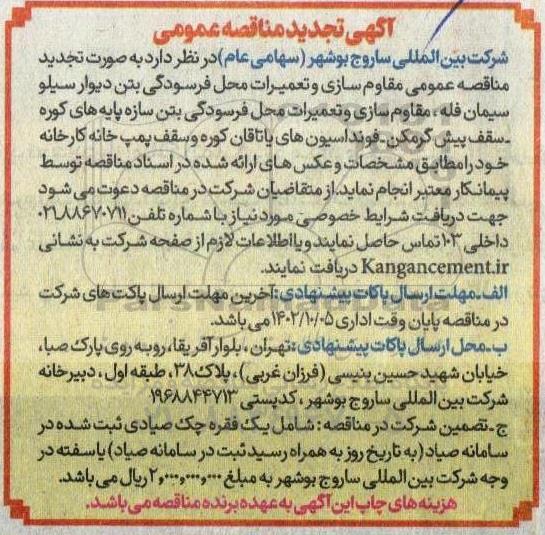 آگهی تجدید مناقصه عمومی
شرکت بین المللی ساروج بوشهر (سهامی عام) در نظر دارد به صورت تجدید
مناقصه عمومی مقاوم سازی و تعمیرات محل فرسودگی بتن دیوار سیلو
سیمان فله ، مقاوم سازی و تعمیرات محل فرسودگی بتن سازه پایه های کوره
ـ سقف پیش گرمکن ـ فونداسیون های یاتاقان کوره و سقف پمپ خانه کارخانه
خود را مطابق مشخصات و عکس های ارائه شده در اسناد مناقصه توسط
پیمانکار معتبر انجام نماید. از متقاضیان شرکت در مناقصه دعوت می شود
جهت دریافت شرایط خصوصی مورد نیاز با شماره تلفن ۰۲۱۸۸۶۷۰۷۱۱
داخلی ۱۰۳ تماس حاصل نمایند و یا اطلاعات لازم از صفحه شرکت به نشانی
Kangancement.ir دریافت نمایند.
الف ـ مهلت ارسال پاکات پیشنهادی : آخرین مهلت ارسال پاکت های شرکت
در مناقصه پایان وقت اداری ۱۴۰۲/۱۰/۰۵ می باشد.
ب ـ محل ارسال پاکات پیشنهادی : تهران ، بلوار آفریقا ، روبه روی پارک صبا،
خیابان شهید حسین بنیسی (فرزان غربی) ، پلاک ۳۸، طبقه اول ، دبیرخانه
شرکت بین المللی ساروج بوشهر ، کدپستی ۱۹۶۸۸۴۴۷۱۳
ج ـ تضمین شرکت در مناقصه : شامل یک فقره چک صیادی ثبت شده در
سامانه صیاد (به تاریخ روز به همراه رسید ثبت در سامانه صیاد) یا سفته در
وجه شرکت بین المللی ساروج بوشهر به مبلغ ۲,۰۰۰,۰۰۰,۰۰۰ ریال می باشد.
هزینه های چاپ این آگهی به عهده برنده مناقصه می باشد.